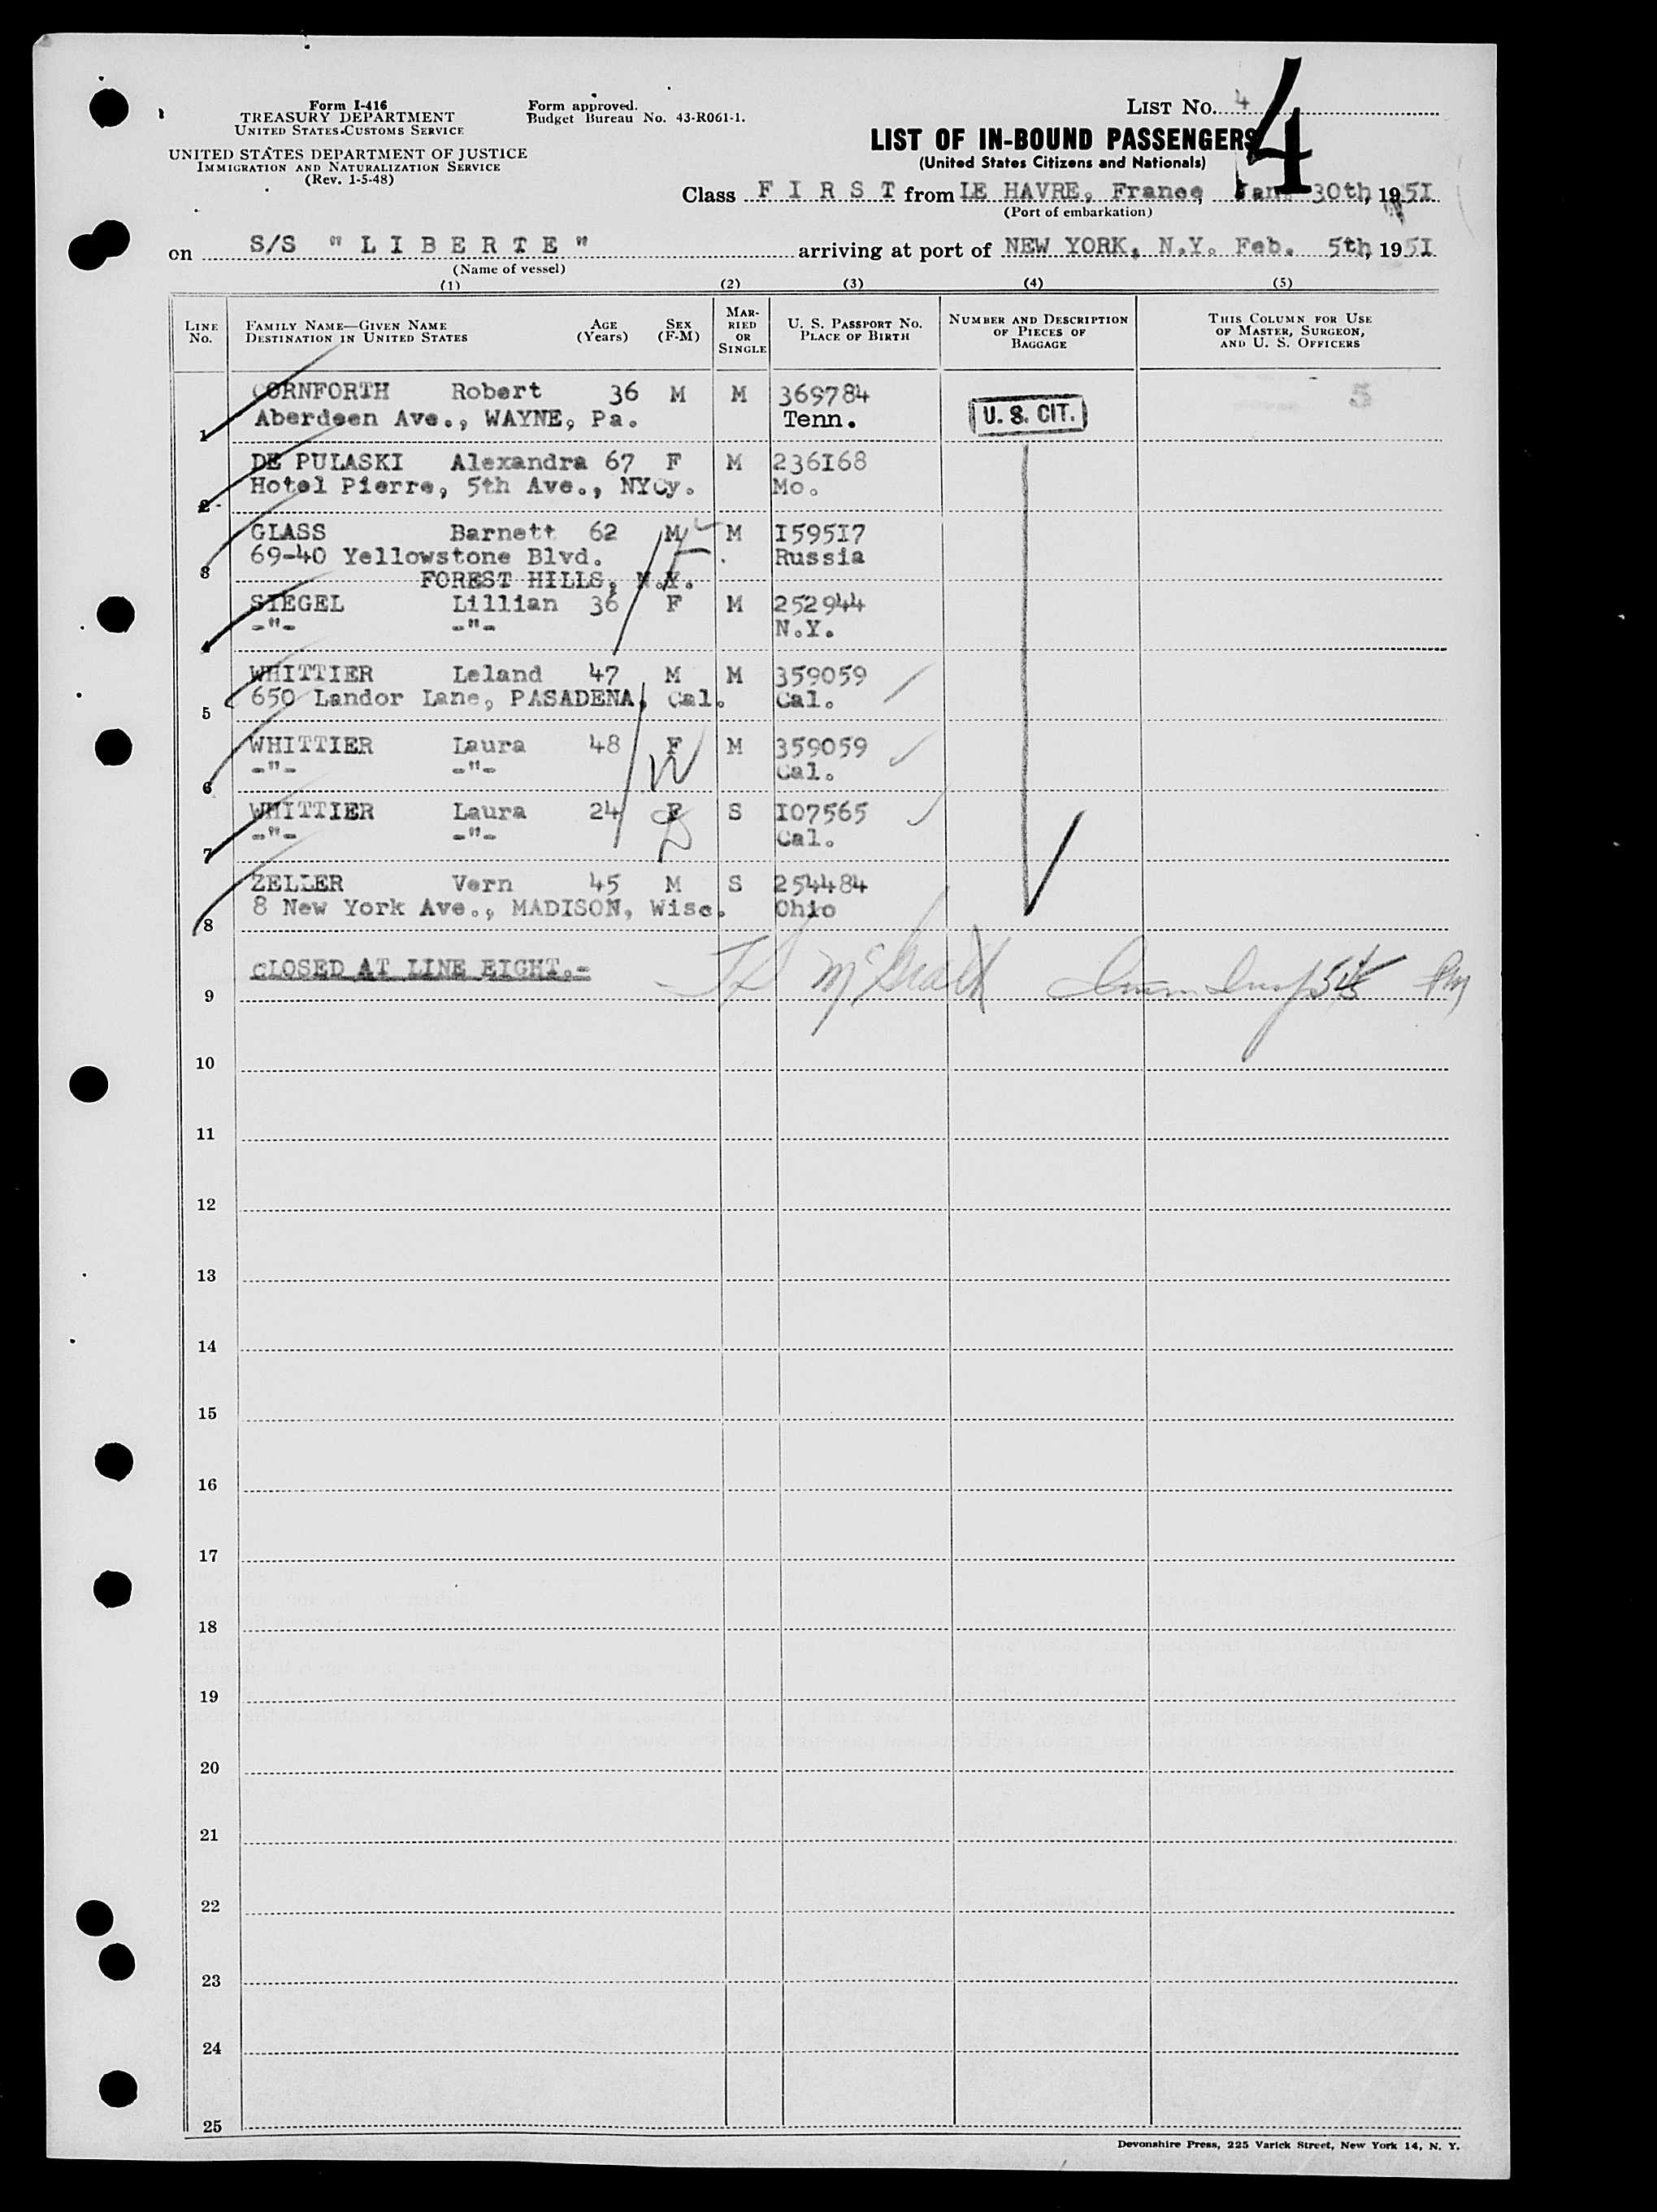 Form I-416
TREASURY DEPARTMENT
UNITED STATES CUSTOMS SERVICE
UNITED STATES DEPARTMENT OF JUSTICE
IMMIGRATION AND NATURALIZATION SERVICE
(Rev. 1-5-48)
Form approved.
Budget Bureau No. 43-R061-1.
LIST NO. 4
4
LIST OF IN-BOUND PASSENGERS
(United States Citizens and Nationals)
Class F I R S T from LE HAVRE, France, Jan. 30th, 1951
(Port of embarkation)
on S/S " L I B E R T E " arriving at port of NEW YORK, N.Y. Feb. 5th, 1951
(Name of vessel)
(1) (2) (3) (4) (5)
LINE No. FAMILY NAME—GIVEN NAME DESTINATION IN UNITED STATES AGE (Years) SEX (F-M) MARRIED OR SINGLE U. S. PASSPORT NO. PLACE OF BIRTH NUMBER AND DESCRIPTION OF PIECES OF BAGGAGE THIS COLUMN FOR USE OF MASTER, SURGEON, AND U. S. OFFICERS
CORNFORTH Robert 36 M M 369784 5
1 Aberdeen Ave., WAYNE, Pa. Tenn. U. S. CIT.
DE PULASKI Alexandra 67 F M 236I68
2 Hotel Pierre, 5th Ave., NYCy. Mo.
GLASS Barnett 62 M M I595I7
3 69-40 Yellowstone Blvd. Russia
FOREST HILLS, N.Y.
SIEGEL Lillian 36 F M 252944
4 -"- -"- N.Y.
WHITTIER Leland 47 M M 359059
5 650 Landor Lane, PASADENA, Cal. Cal.
WHITTIER Laura 48 F M 359059
6 -"- -"- Cal.
WHITTIER Laura 24 F S I07565
7 -"- -"- Cal.
ZELLER Vern 45 M S 254484
8 8 New York Ave., MADISON, Wisc. Ohio
9 CLOSED AT LINE EIGHT.-
10
11
12
13
14
15
16
17
18
19
20
21
22
23
24
25
Devonshire Press, 225 Varick Street, New York 14, N. Y.